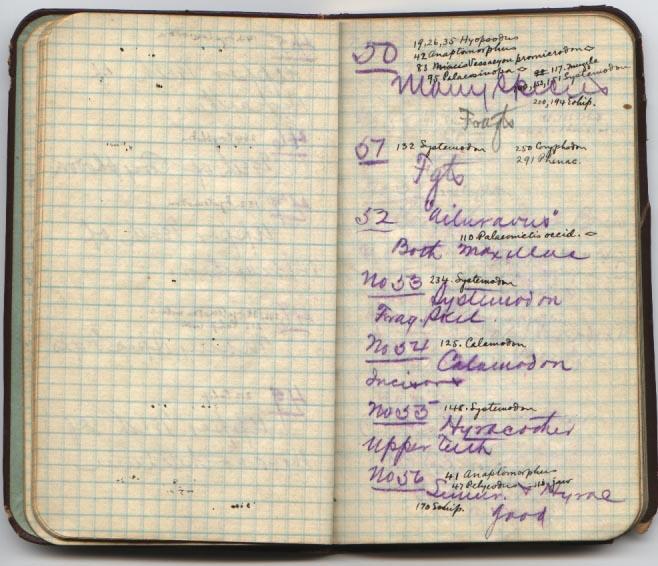 50 19, 26, 35 Hyopsodus
42 Anaptomorphus
83 Miacis Vassacyon promicrodon
95 Palaeosinopa 117. jaw
Many Species 151 Systemodon
210, 194 Eohip.
Fragts
57 132 Systemodon 250 Coryphodon
291 Phenac.
Fgts
52 "Ailuravus"
110 Palaeonictis occid.
Both Maxillae
No 53 234. Systemodon
Systemodon
Frag. Skel.
No 54 125. Calamodon
Calamodon
Incisors
No 55 148. Systemodon
Hyracother
Upper Teeth
No 56 41 Anaptomorphus
47 Pelycodus jaw
& Hyrac
170 Eohip.
good